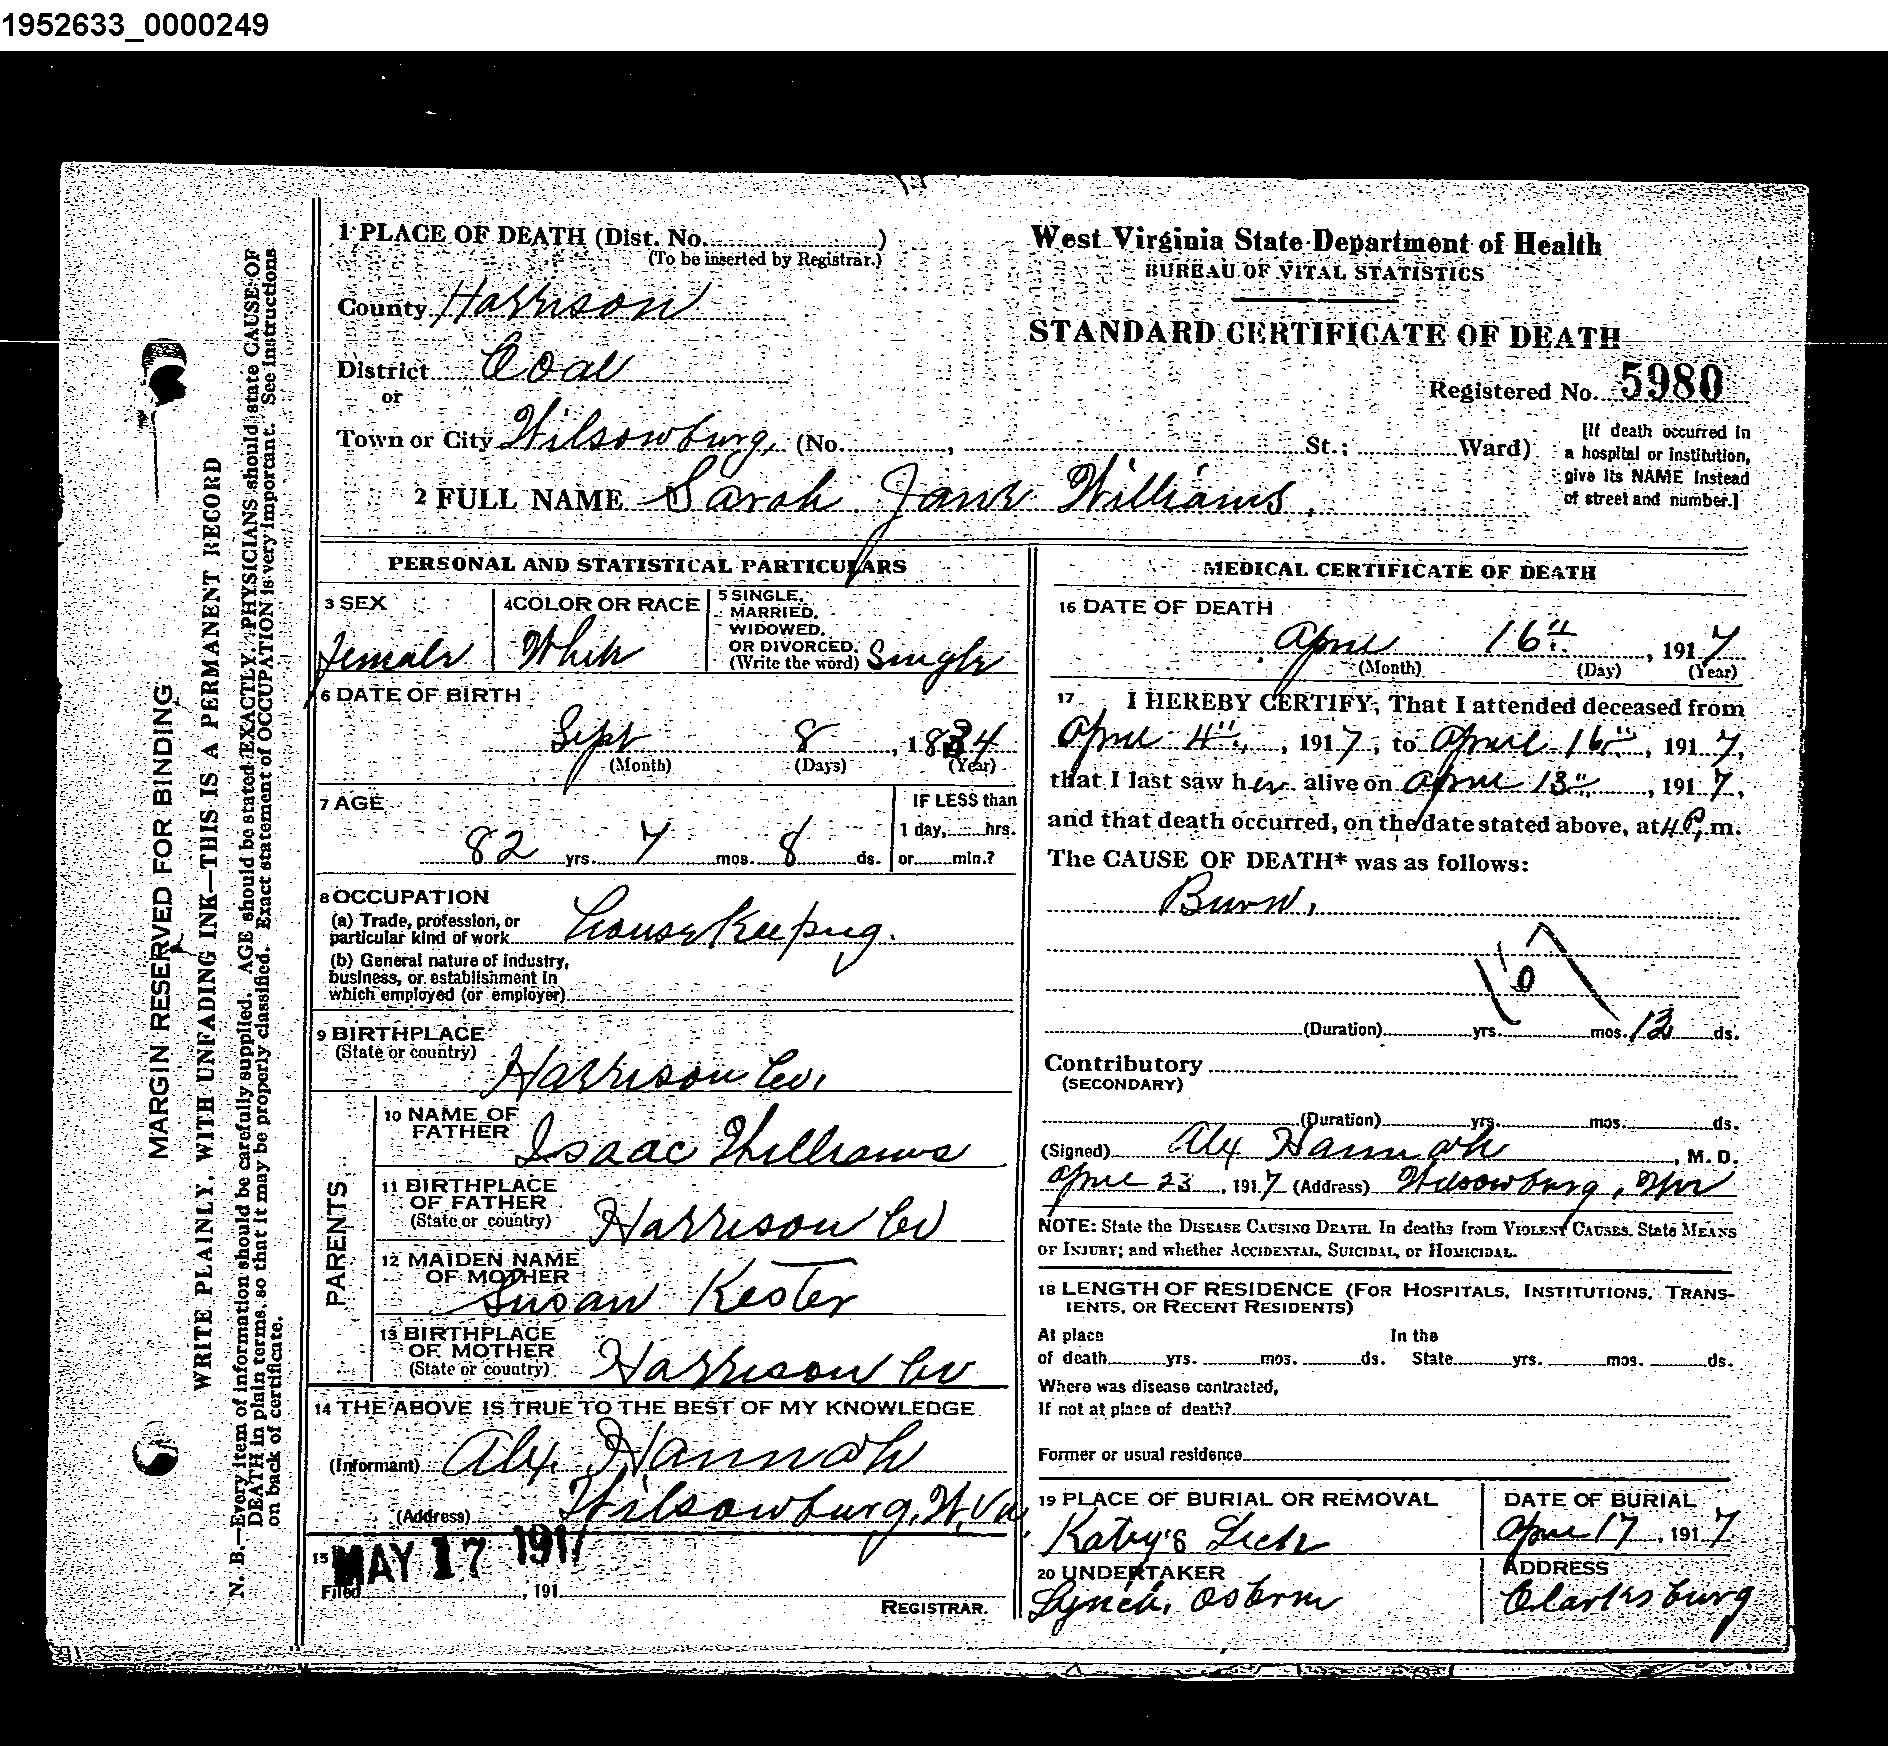 1952633_0000249
1 PLACE OF DEATH (Dist. No. )
(To be inserted by Registrar.)
County Harrison
District Coal
or
Town or City Wilsonburg, (No. , St.; Ward)
2 FULL NAME Sarah Jane Williams.
West Virginia State Department of Health
BUREAU OF VITAL STATISTICS
STANDARD CERTIFICATE OF DEATH
Registered No. 5980
[If death occurred in
a hospital or institution,
give its NAME instead
of street and number.]
MARGIN RESERVED FOR BINDING
WRITE PLAINLY, WITH UNFADING INK—THIS IS A PERMANENT RECORD
N. B.—Every item of information should be carefully supplied. AGE should be stated EXACTLY. PHYSICIANS should state CAUSE OF
DEATH in plain terms, so that it may be properly classified. Exact statement of OCCUPATION is very important. See instructions
on back of certificate.
PERSONAL AND STATISTICAL PARTICULARS
3 SEX
Female
4 COLOR OR RACE
White
5 SINGLE,
MARRIED,
WIDOWED,
OR DIVORCED.
(Write the word) Single
6 DATE OF BIRTH
Sept 8, 1834
(Month) (Days) (Year)
7 AGE
82 yrs. 7 mos. 8 ds.
IF LESS than
1 day, hrs.
or min.?
8 OCCUPATION
(a) Trade, profession, or
particular kind of work House Keeping.
(b) General nature of industry,
business, or establishment in
which employed (or employer)
9 BIRTHPLACE
(State or country)
Harrison Co,
PARENTS
10 NAME OF
FATHER
Isaac Williams
11 BIRTHPLACE
OF FATHER
(State or country) Harrison Co
12 MAIDEN NAME
OF MOTHER
Susan Kester
13 BIRTHPLACE
OF MOTHER
(State or country) Harrison Co
14 THE ABOVE IS TRUE TO THE BEST OF MY KNOWLEDGE
(Informant) Alex. Hannah
(Address) Wilsonburg, W. Va,
15
MAY 17 1917
Filed , 191
REGISTRAR.
MEDICAL CERTIFICATE OF DEATH
16 DATE OF DEATH
April 16th, 1917
(Month) (Day) (Year)
17 I HEREBY CERTIFY, That I attended deceased from
April 4", 1917, to April 16", 1917,
that I last saw her alive on April 13", 1917,
and that death occurred, on the date stated above, at 4 P. m.
The CAUSE OF DEATH* was as follows:
Burn,
(Duration) yrs. mos. 12 ds.
Contributory
(SECONDARY)
(Duration) yrs. mos. ds.
(Signed) Alex Hannah, M. D.
April 23, 1917 (Address) Wilsonburg, WVa
NOTE: State the DISEASE CAUSING DEATH. In deaths from VIOLENT CAUSES, State MEANS
OF INJURY; and whether ACCIDENTAL, SUICIDAL, or HOMICIDAL.
18 LENGTH OF RESIDENCE (FOR HOSPITALS, INSTITUTIONS, TRANS-
IENTS, OR RECENT RESIDENTS)
At place In the
of death yrs. mos. ds. State yrs. mos. ds.
Where was disease contracted,
If not at place of death?
Former or usual residence
19 PLACE OF BURIAL OR REMOVAL
Katy's Lick
DATE OF BURIAL
April 17, 1917
20 UNDERTAKER
Lynch, Osborn
ADDRESS
Clarksburg